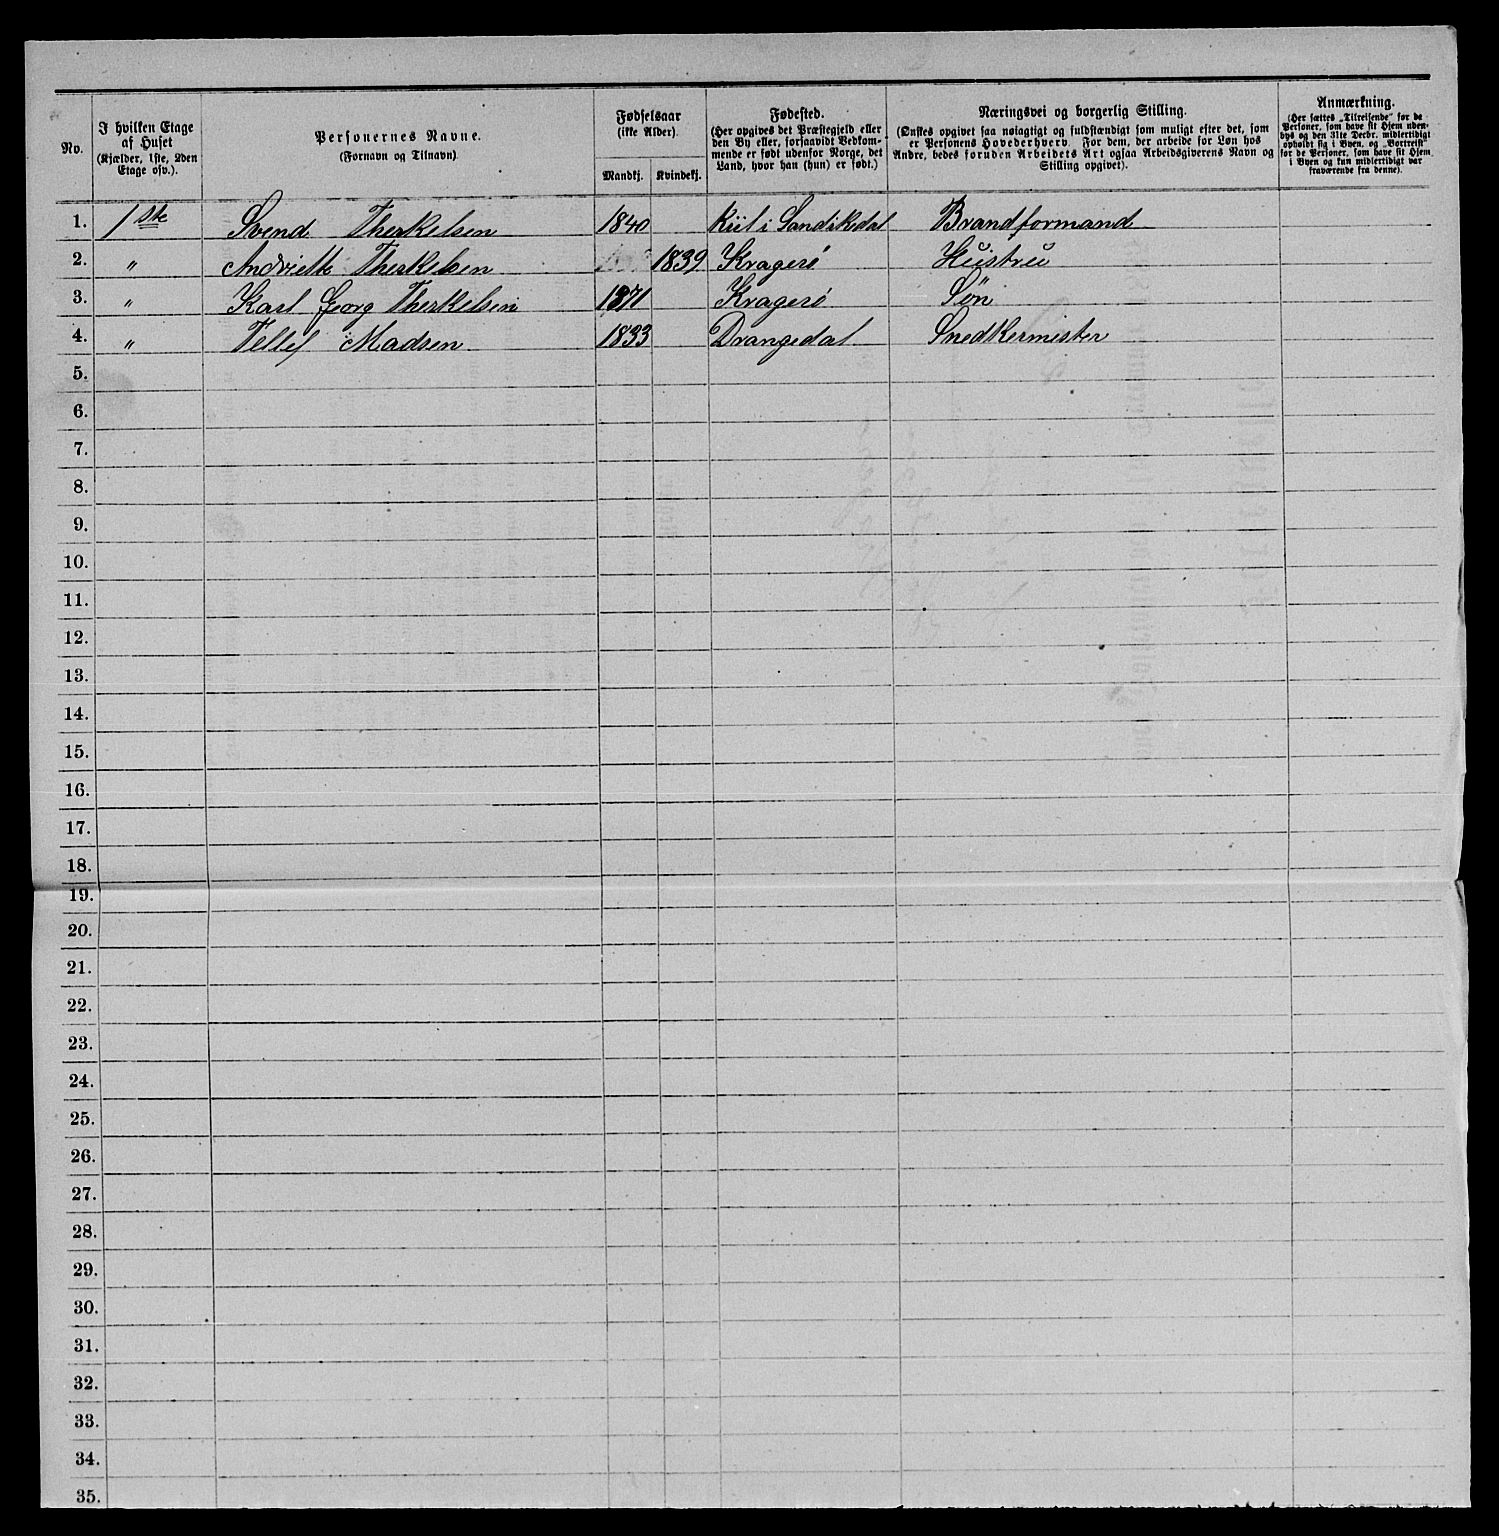 No.
I hvilken Etage
af Huset
(Kjælder, 1ste, 2den
Etage osv.).
Personernes Navne.
(Fornavn og Tilnavn)
Fødselsaar
(ikke Alder).
Mandkj. Kvindekj.
Fødested.
(Her opgives det Præstegjeld eller
den By eller, forsaavidt Vedkom-
mende er født udenfor Norge, det
Land, hvor han (hun) er født.)
Næringsvei og borgerlig Stilling.
(Ønskes opgivet saa nøiagtigt og fuldstændigt som muligt efter det, som
er Personens Hovederhverv. For dem, der arbeide for Løn hos
Andre, bedes foruden Arbeidets Art ogsaa Arbeidsgiverens Navn og
Stilling opgivet).
Anmærkning.
(Her sættes „Tilreisende" for de
Personer, som have sit Hjem uden-
bys og den 31te Decbr. midlertidigt
opholdt sig i Byen, og „Bortreist"
for de Personer, som have sit Hjem
i Byen og kun midlertidigt var
fraværende fra denne).
1. 1ste Svend Therkelsen 1840 Kiil i Sandikedal Brandformand
2. " Andriette Therkelsen 1839 Kragerö Hustru
3. " Karl Georg Therkelsen 1871 Kragerö Sön
4. " Tellef Madsen 1833 Drangedal Snedkermister
5.
6.
7.
8.
9.
10.
11.
12.
13.
14.
15.
16.
17.
18.
19.
20.
21.
22.
23.
24.
25.
26.
27.
28.
29.
30.
31.
32.
33.
34.
35.